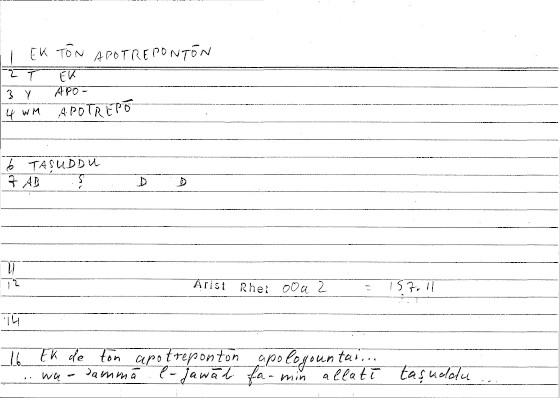 1 EK TŌN APOTREPONTŌN
2 T EK
3 Y APO-
4 WM APOTREPŌ
6 TAṢUDDU
7 AB Ṣ D D
11
12 Arist Rhet 00a 2 = 157.11
14
16 Ek de tōn apotrepontōn apologountai...
.. wa-ʾammā l-jawād fa-min allatī taṣuddu ...